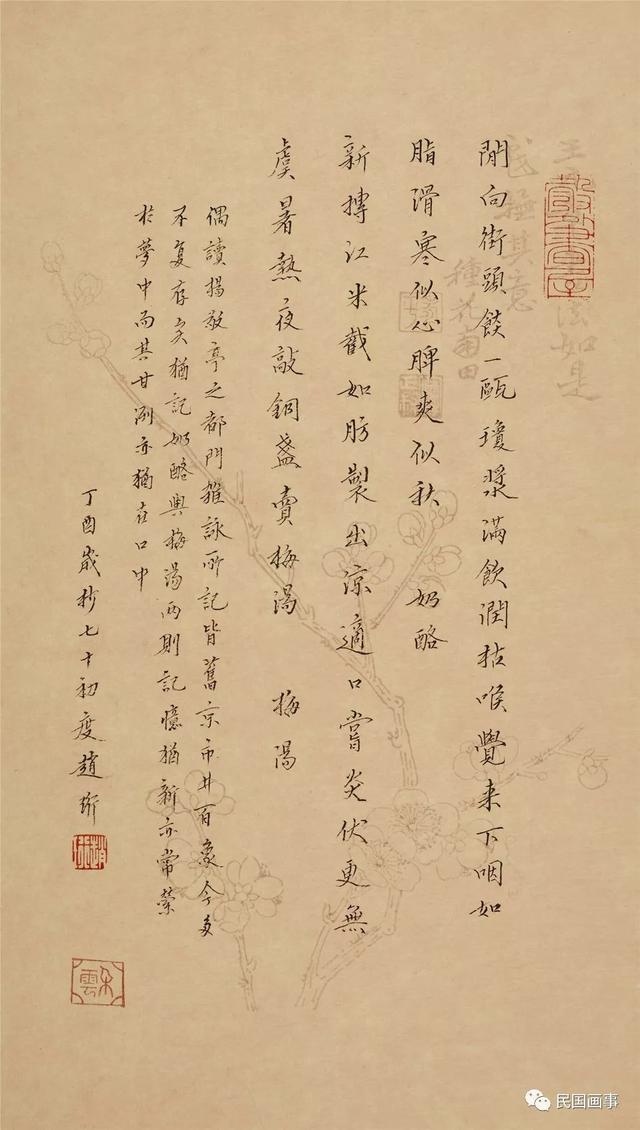 閒向街頭餤一甌瓊漿滿飲潤枯喉覺来下咽如
脂滑寒似心脾爽似秋 奶酪
新摶江米截如肪製出凉適口嘗炎伏更無
虞暑熱夜敲銅盞賣梅湯 梅湯
偶讀楊敘亭之都門雜詠所記皆舊京市井百象今多
不复存矣猶記奶酪與梅湯兩則記憶猶新亦常縈
於夢中而其甘冽亦猶在口中
丁酉歲抄七十初度趙珩
种花
如是
其意
民国画事